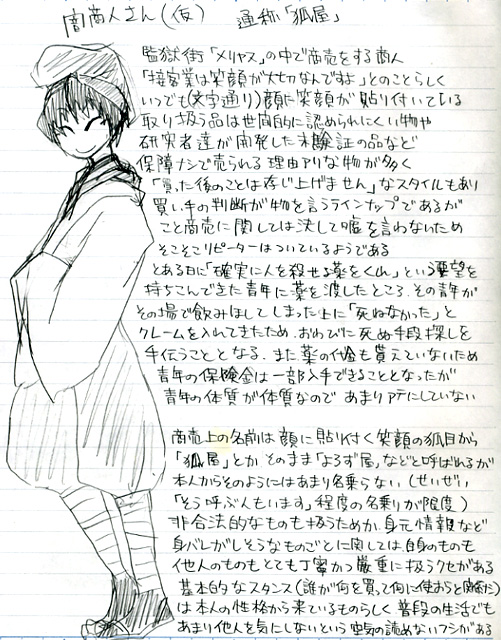 闇商人さん(仮) 通称「狐屋」
監獄街「メリヤス」の中で商売をする商人
「接客業は笑顔が大切なんですよ」とのことらしく
いつでも(文字通り)顔に笑顔が貼り付いている
取り扱う品は世間的に認められにくい物や
研究者達が開発した未験証の品など
保障ナシで売られる理由アリな物が多く
「買った後のことは存じ上げません」なスタイルもあり
買い手の判断が物を言うラインナップであるが
こと商売に関しては決して嘘を言わないため
そこそこリピーターはついているようである
とある日に「確実に人を殺せる薬をくれ」という要望を
持ちこんできた青年に薬を渡したところ、その青年が
その場で飲みほしてしまった上に「死ねなかった」と
クレームを入れてきたため、おわびに死ぬ手段探しを
手伝うこととなる。また薬の代金も貰えていないため
青年の保険金は一部入手できることとなったが
青年の体質が体質なので あまりアテにしていない
商売上の名前は顔に貼り付く笑顔の狐目から
「狐屋」とか そのまま「よろず屋」などと呼ばれるが
本人からそのようにはあまり名乗らない(せいぜい
「そう呼ぶ人もいます」程度の名乗りが限度)
非合法的なものも扱うためか、身元情報など
身バレがしそうなものごとに関しては、自身のものも
他人のものもとても丁寧かつ厳重に扱うクセがある
基本的なスタンス(誰が何を買って何に使おうと
は本人の性格から来ているものらしく 普段の生活でも
あまり他人を気にしないという 空気の読めないフシがある